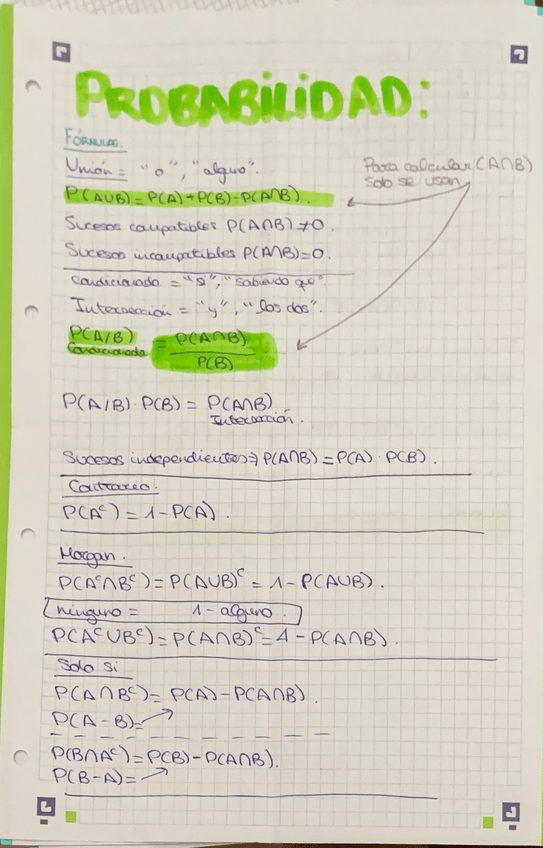 PROBABILIDAD:
FÓRMULAS.
Unión = "o", "alguno".
P(A∪B)=P(A)+P(B)-P(A∩B).
Para calcular (A∩B)
solo se usan
Sucesos compatibles P(A∩B)≠0.
Sucesos incompatibles P(A∩B)=0.
Condicionada = "si", "sabiendo que"
Intersección = "y", "los dos".
P(A/B) = P(A∩B)
Condicionada P(B)
P(A/B)·P(B) = P(A∩B)
Intersección.
Sucesos independientes⇒P(A∩B)=P(A)·P(B).
Contrario.
P(Aᶜ) = 1-P(A).
Morgan.
P(Aᶜ∩Bᶜ)=P(A∪B)ᶜ= 1-P(A∪B).
ninguno = 1-alguno.
P(Aᶜ∪Bᶜ)=P(A∩B)ᶜ=1-P(A∩B).
Solo si
P(A∩Bᶜ)=P(A)-P(A∩B).
P(A-B)=↗
P(B∩Aᶜ)=P(B)-P(A∩B).
P(B-A)=↗